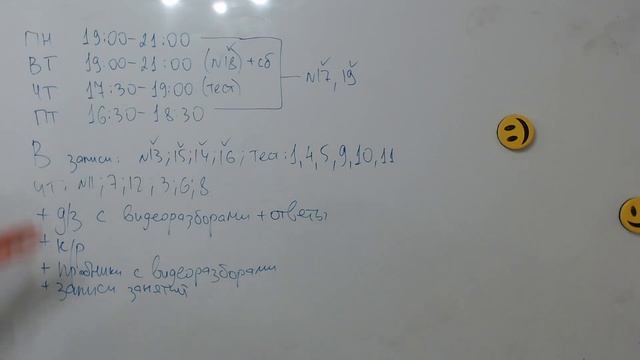 ПН 19:00-21:00
ВТ 19:00-21:00 (№18) + сб
ЧТ 17:30-19:00 (тест)
ПТ 16:30-18:30
№17, 19
В записи: №13; 15; 14; 16; Тест: 1,4,5,9,10,11
ЧТ: №11; 7; 12; 3; 6; 8
+ д/з с видеоразборами + ответы
+ к/р
+ пробники с видеоразборами
+ записи занятий